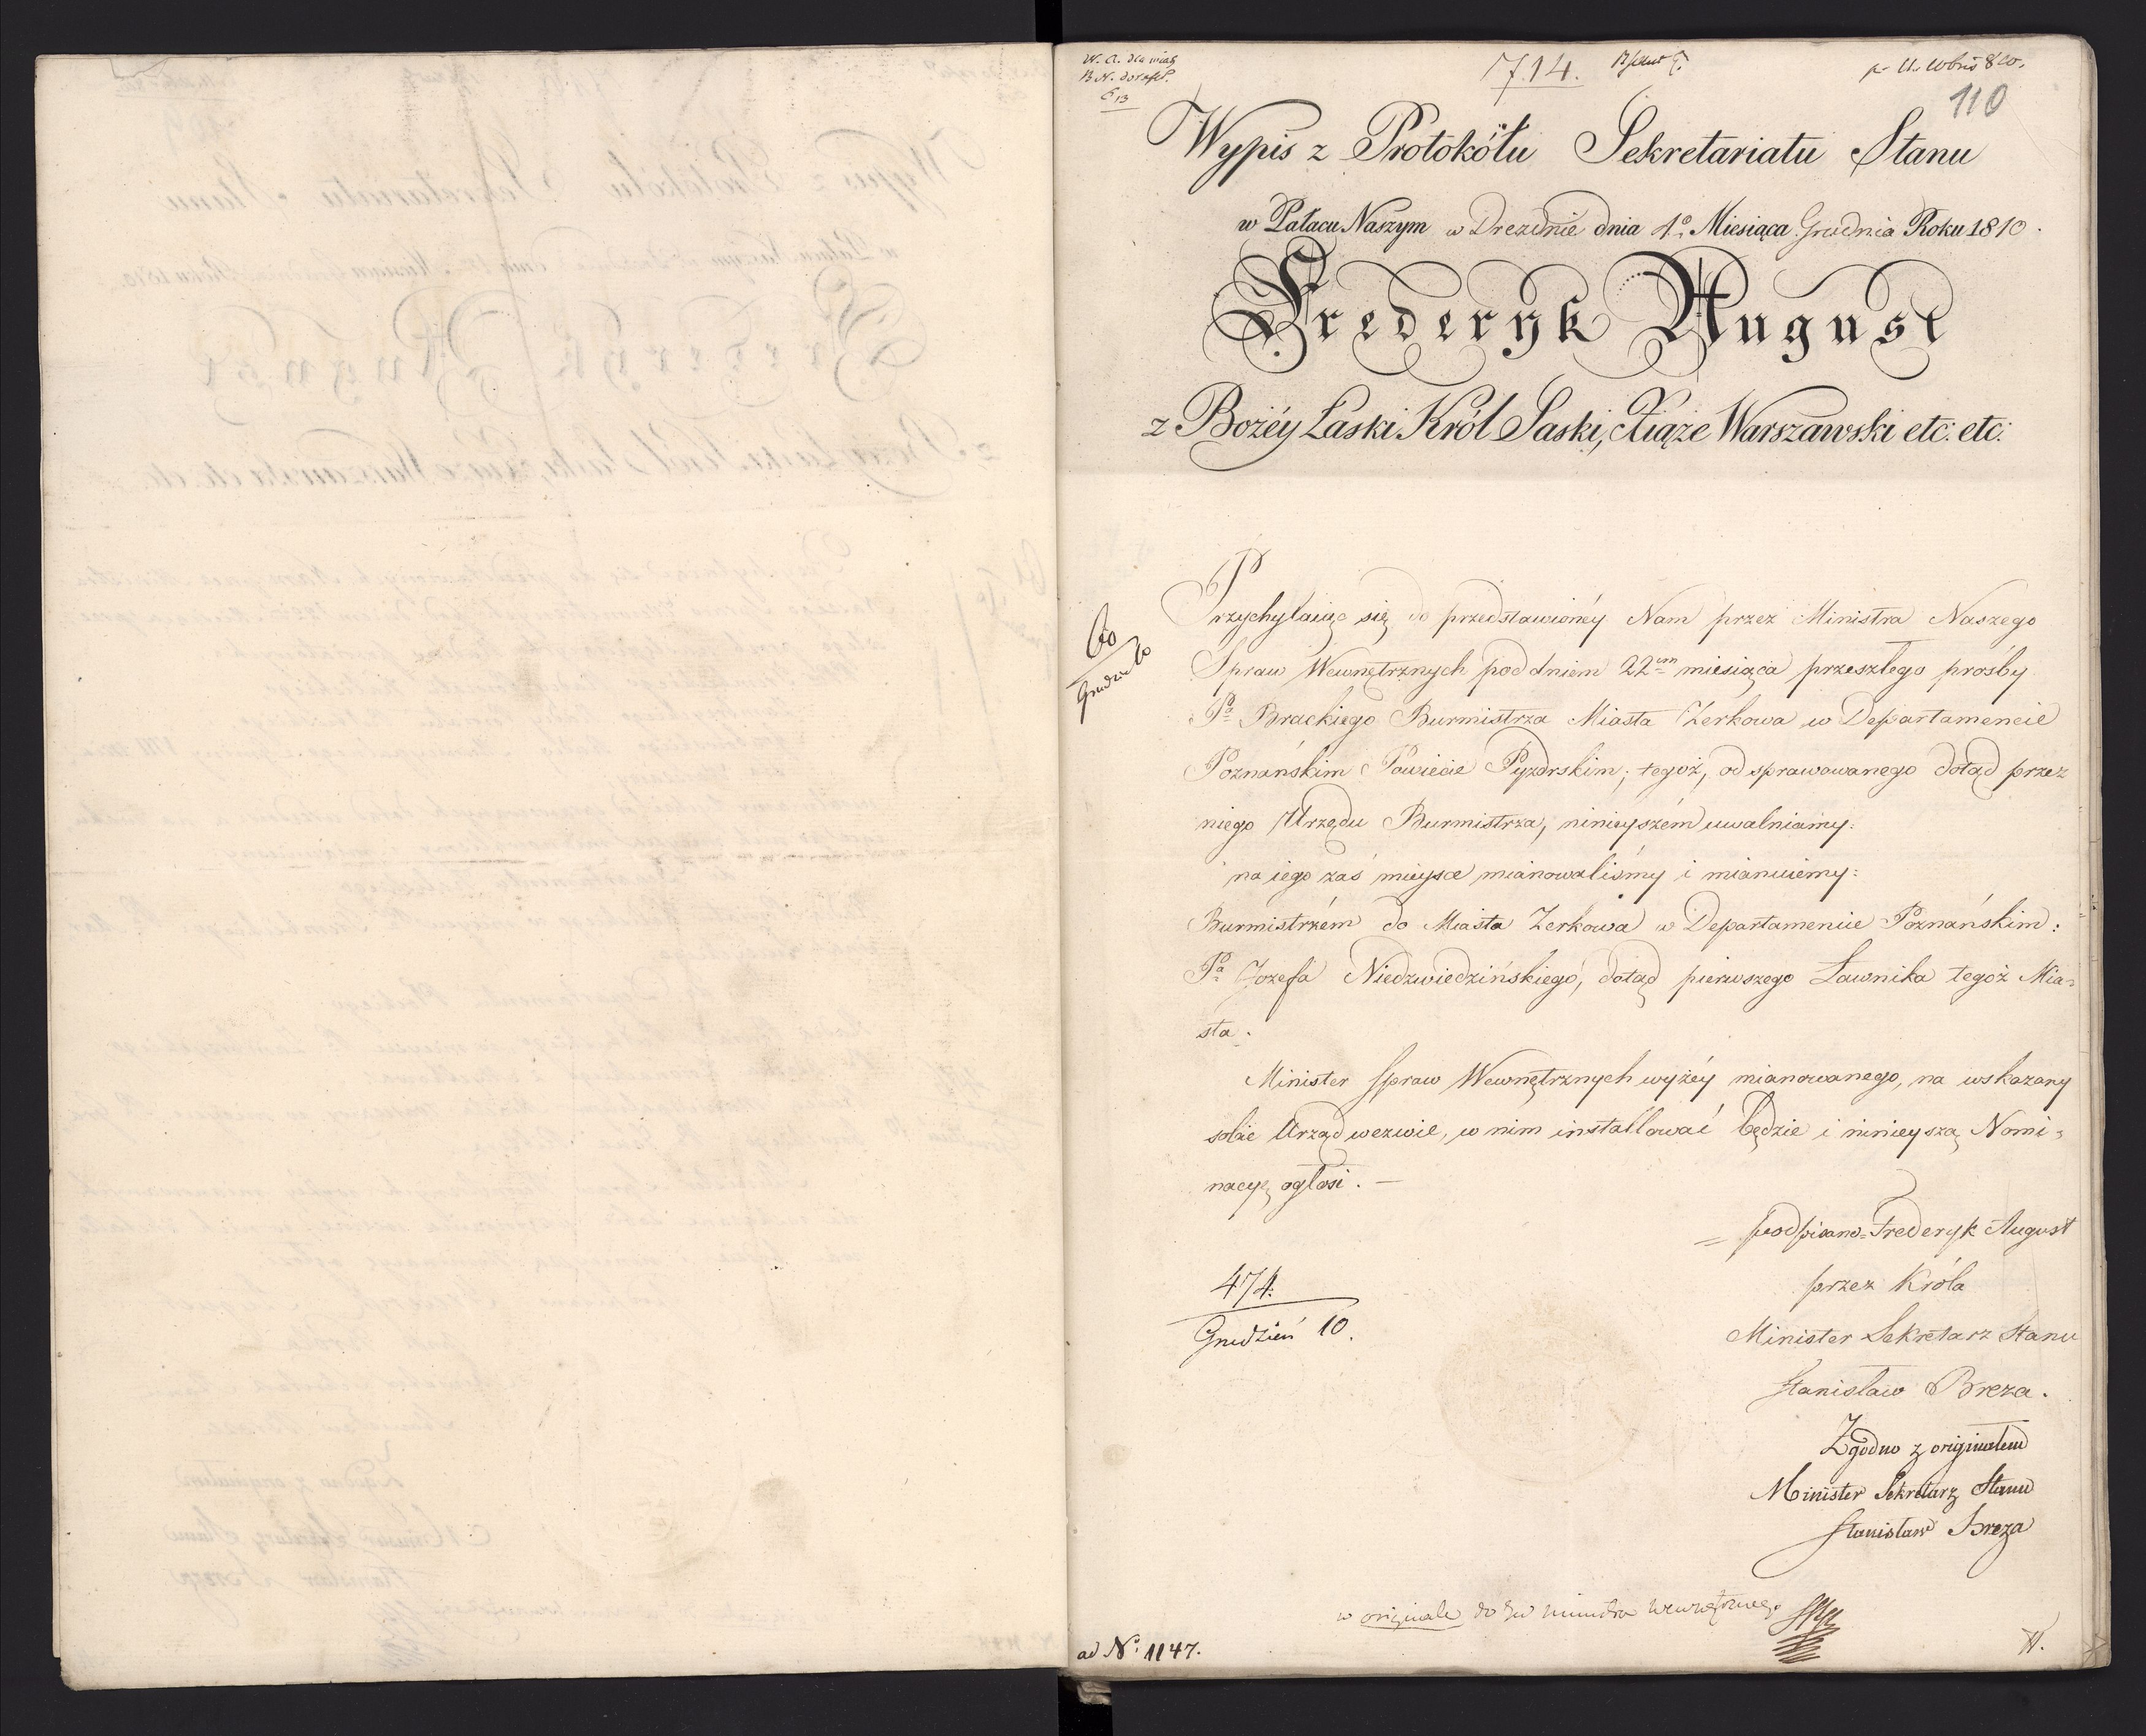 714.
110
Wypis z Protokółu Sekretariatu Stanu
w Pałacu Naszym w Dreznie dnia 1º Miesiąca Grudnia Roku 1810.
Frederyk August
z Bożéy Łaski Król Saski, Xiąże Warszawski etc: etc:
Przychylaiąc się do przedstawionéy Nam przez Ministra Naszego
Spraw Wewnętrznych pod dniem 22im miesiąca przeszłego prośby
Pa Brackiego Burmistrza Miasta Zerkowa w Departamencie
Poznańskim Powiecie Pyzdrskim; tegoż, od sprawowanego dotąd przez
niego Urzędu Burmistrza, ninieyszém uwalniamy:
na iego zaś mieysce mianowaliśmy i mianuiemy:
Burmistrzém do Miasta Zerkowa w Departamencie Poznańskim:
Pa Jozefa Niedzwiedzińskiego, dotąd pierwszego Ławnika tegoż Mia=
sta.
Minister Spraw Wewnętrznych wyżéy mianowanego, na wskazany
sobie Urząd wezwie, w nim installować będzie i ninieyszą Nomi=
nacyę ogłosi. —
= podpisano = Frederyk August
przez Króla
Minister Sekretarz Stanu
Stanisław Breza.
474.
Grudzień 10.
Zgodno z originałem
Minister Sekretarz Stanu
Stanisław Breza
w originale do
ad Nº 1147.